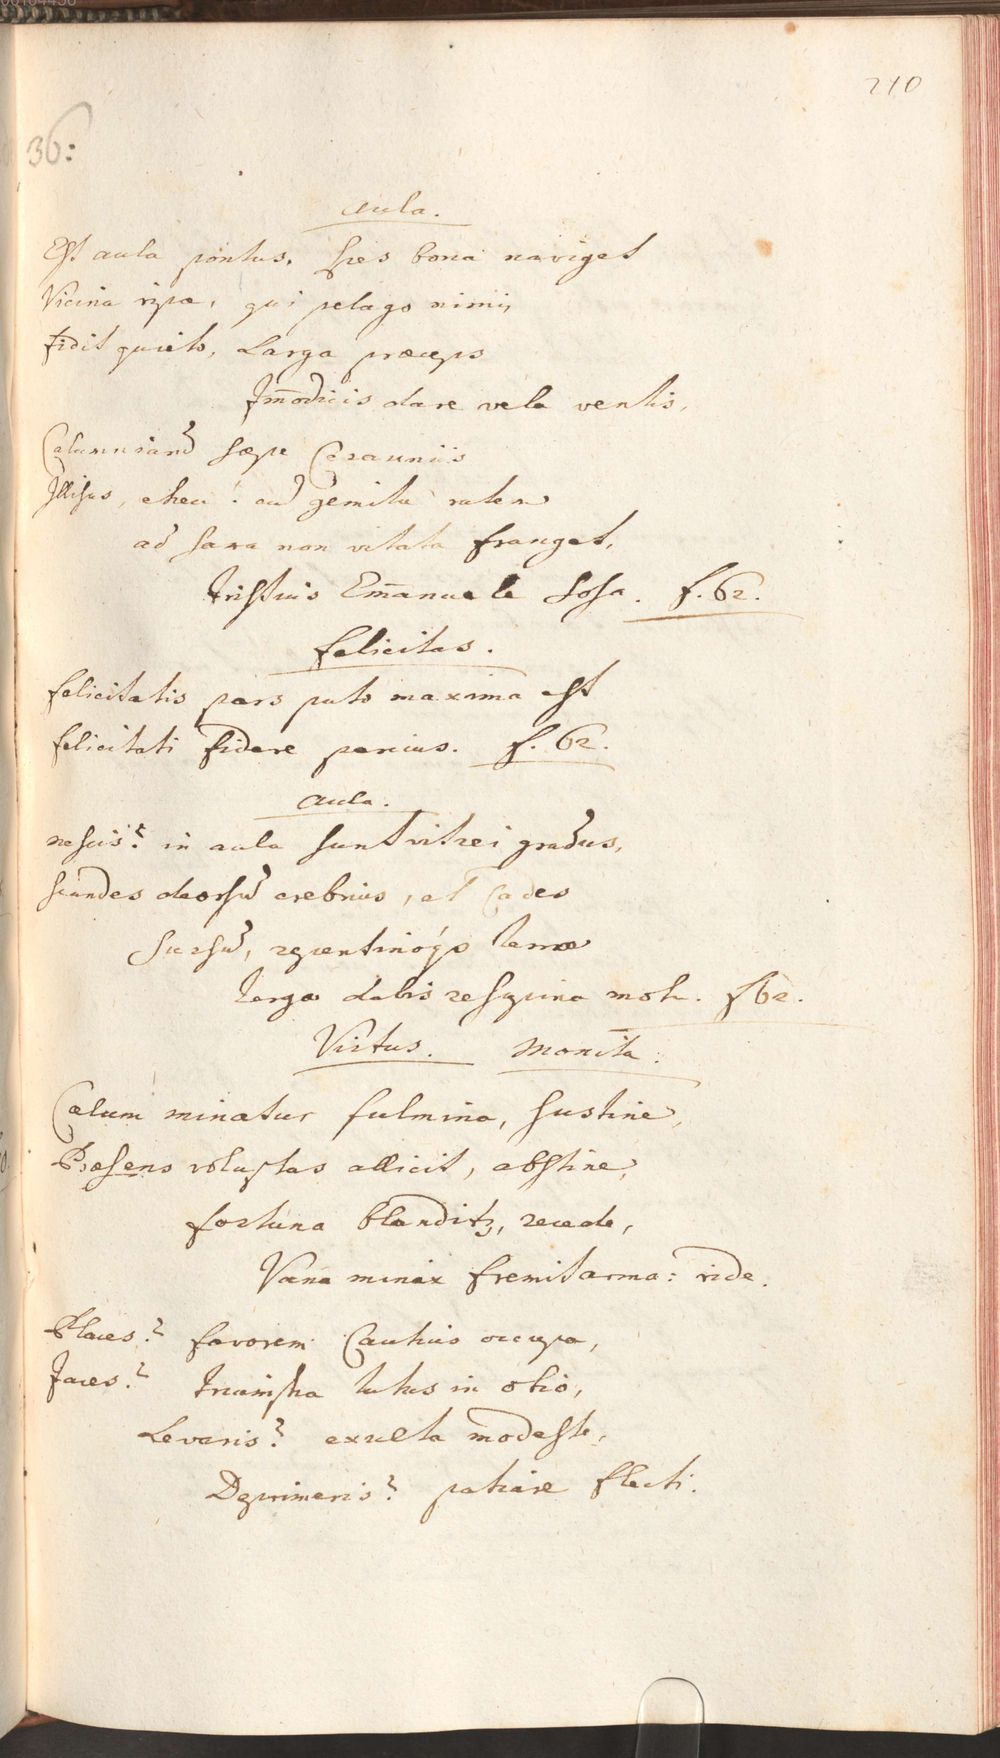 210
36:
Aula.
Est aula pontus. Spes bona naviget
Vicina ripæ, qui pelago nimis
Fidit quieto, Larga præceps
Im̄odicis dare vela ventis,
Calumniarũ sæpe Cerauniis
Illisus, eheu! cũ gemitu ratem
ad saxa non vitata franget,
Tristius Em̄anuele Sosa. f. 62.
Felicitas.
Felicitatis pars puto maxima est
felicitati fidere parcius. f. 62.
Aula.
nescis? in aula sunt vitrei gradus,
scandes deorsũ crebrius, et Cades
Sursũ, repentinoq́ʒ terræ
Terga dabis resupina motu. f 62.
Virtus. Monita.
Cælum minatur fulmina, sustine,
Præsens voluptas allicit, abstine,
fortuna blanditʒ, recede,
Vana minax fremit arma: ride.
Places? favorem Cautius occupa,
Jaces? Triumpha tutus in otio,
Levaris? exulta modeste,
Deprimeris? patiare flecti.